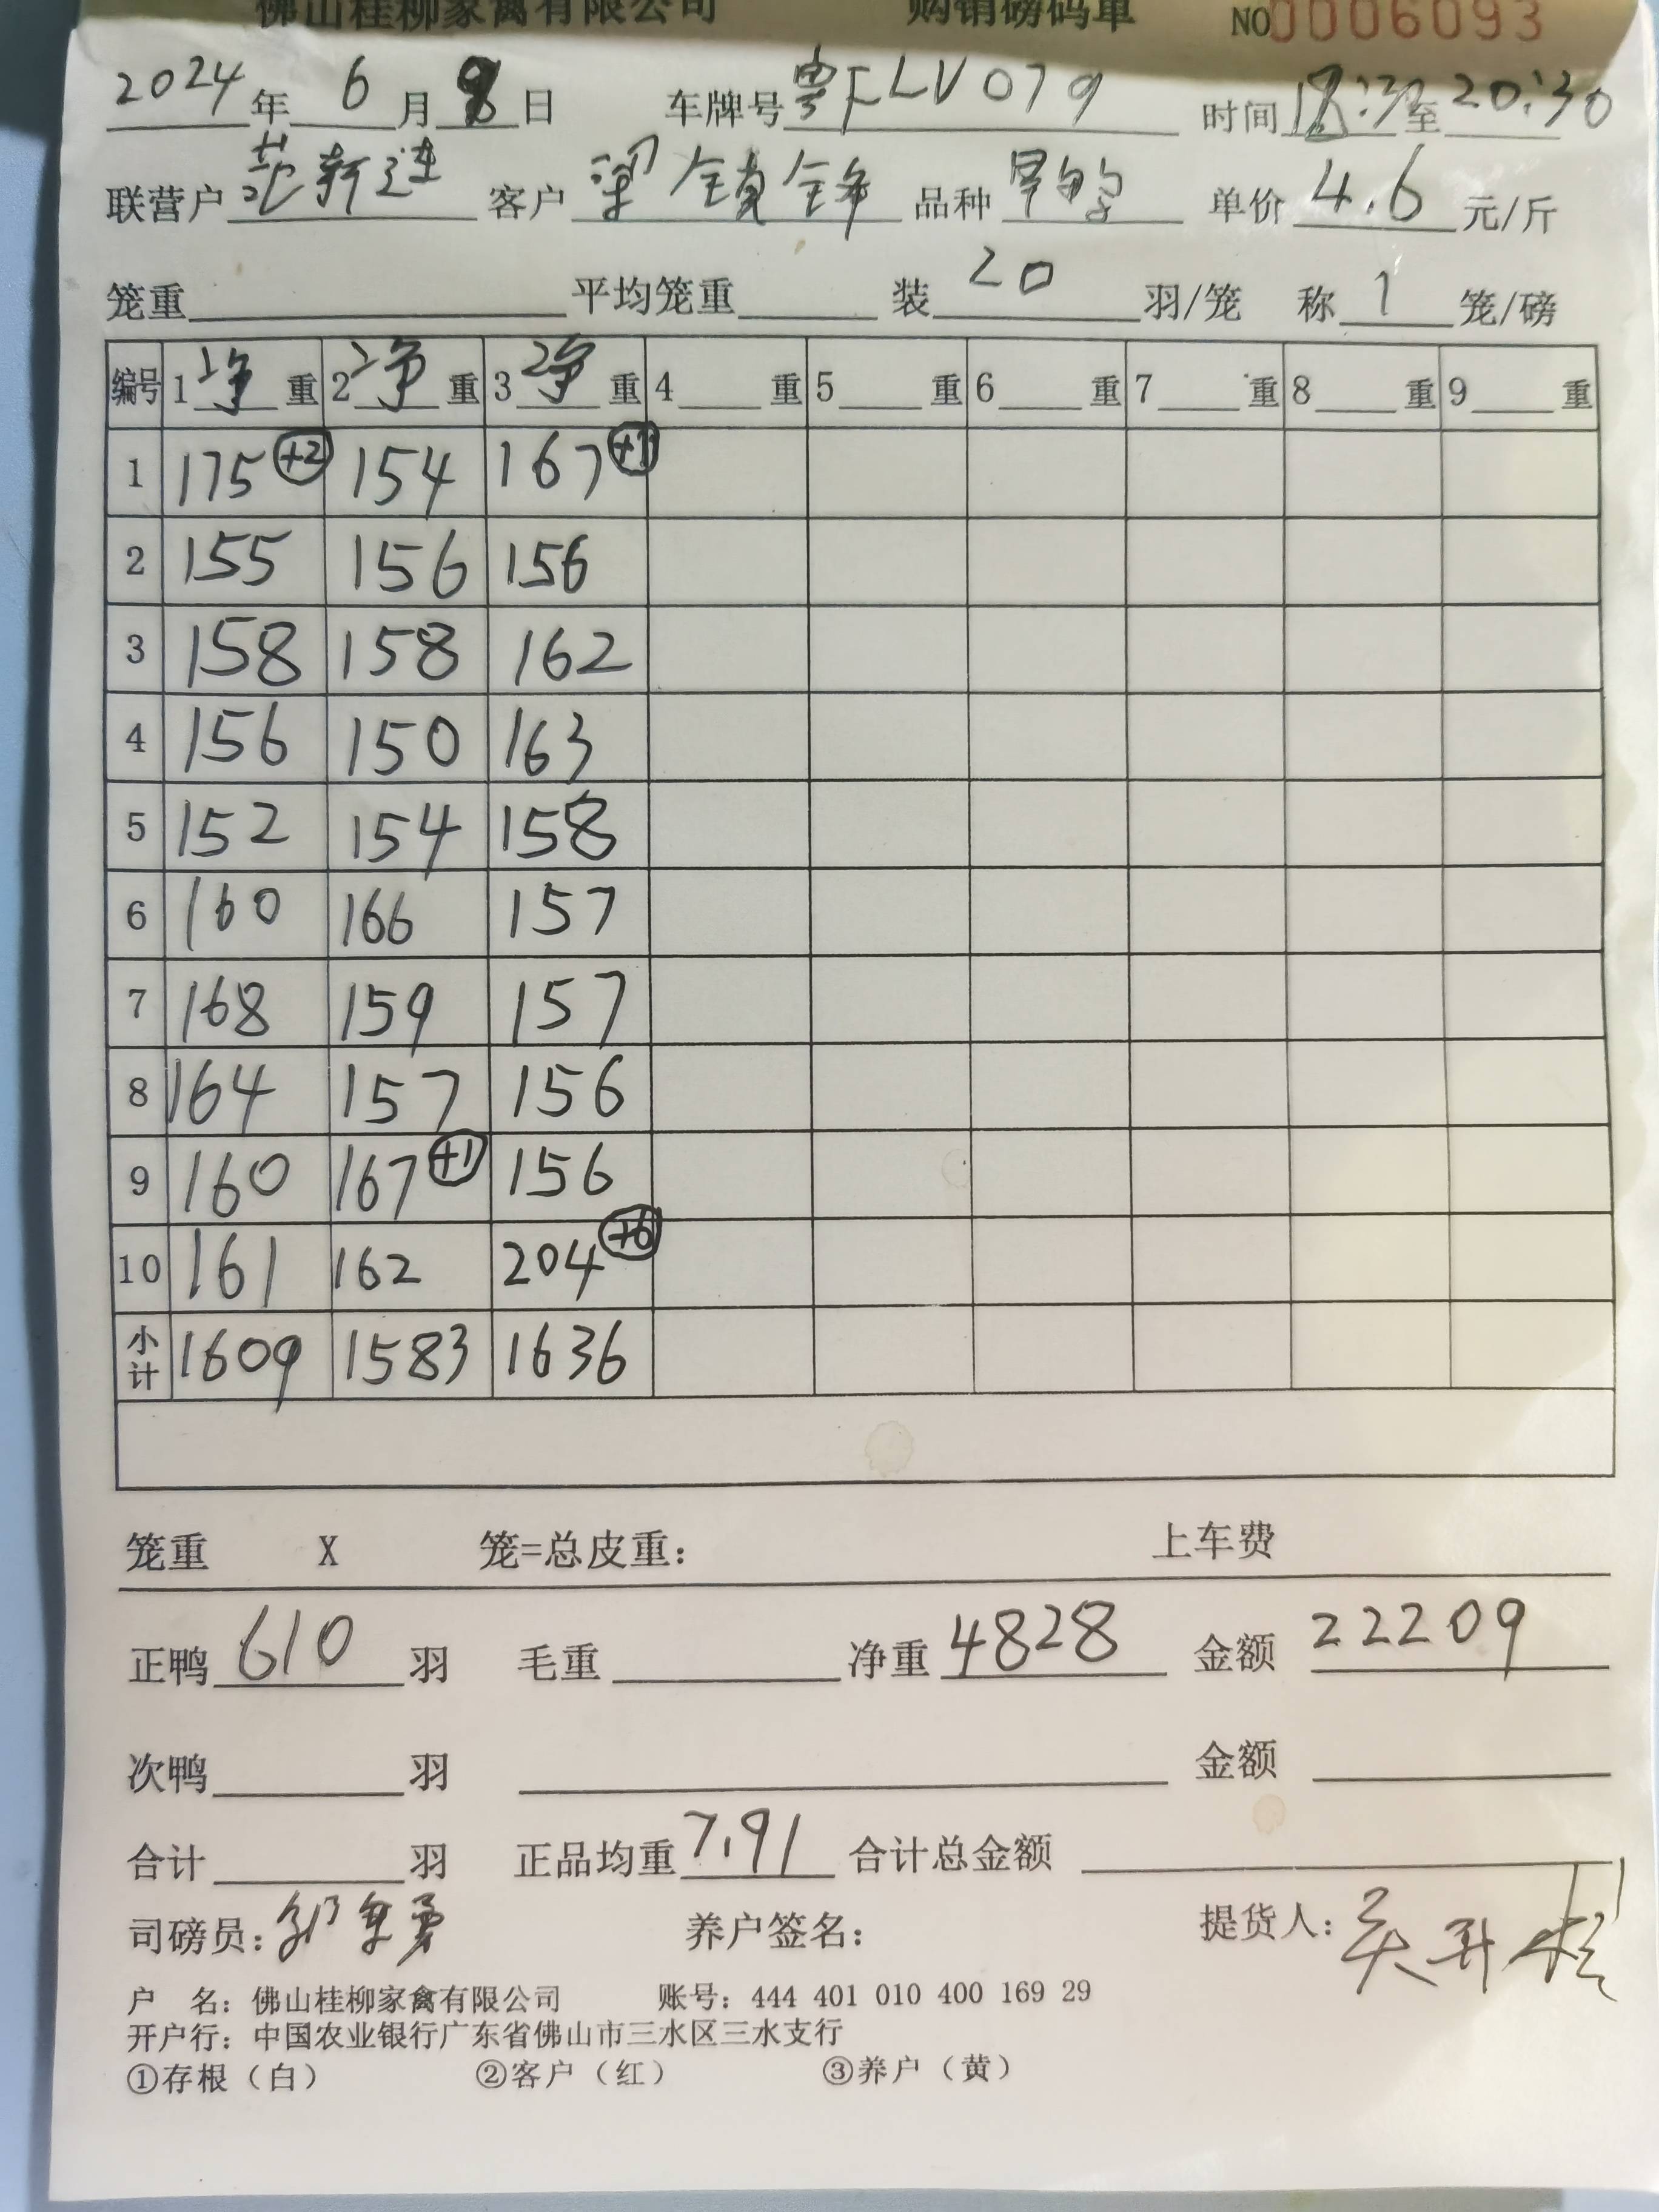 佛山桂柳家禽有限公司 购销磅码单 NO0006093
2024年 6月 8日 车牌号 粤FLV079 时间 18:30至20:30
联营户 范新连 客户 梁锦锋 品种 单价 4.6 元/斤
笼重 平均笼重 装 20 羽/笼 称 1 笼/磅
编号 1 净 重 2 净 重 3 净 重 4 重 5 重 6 重 7 重 8 重 9 重
1 175 +2 154 167 +1
2 155 156 156
3 158 158 162
4 156 150 163
5 152 154 158
6 160 166 157
7 168 159 157
8 164 157 156
9 160 167 +1 156
10 161 162 204 +6
小计 1609 1583 1636
笼重 X 笼=总皮重: 上车费
正鸭 610 羽 毛重 净重 4828 金额 22209
次鸭 羽 金额
合计 羽 正品均重 7.91 合计总金额
司磅员: 养户签名: 提货人:
户 名: 佛山桂柳家禽有限公司 账号: 444 401 010 400 169 29
开户行: 中国农业银行广东省佛山市三水区三水支行
①存根（白） ②客户（红） ③养户（黄）